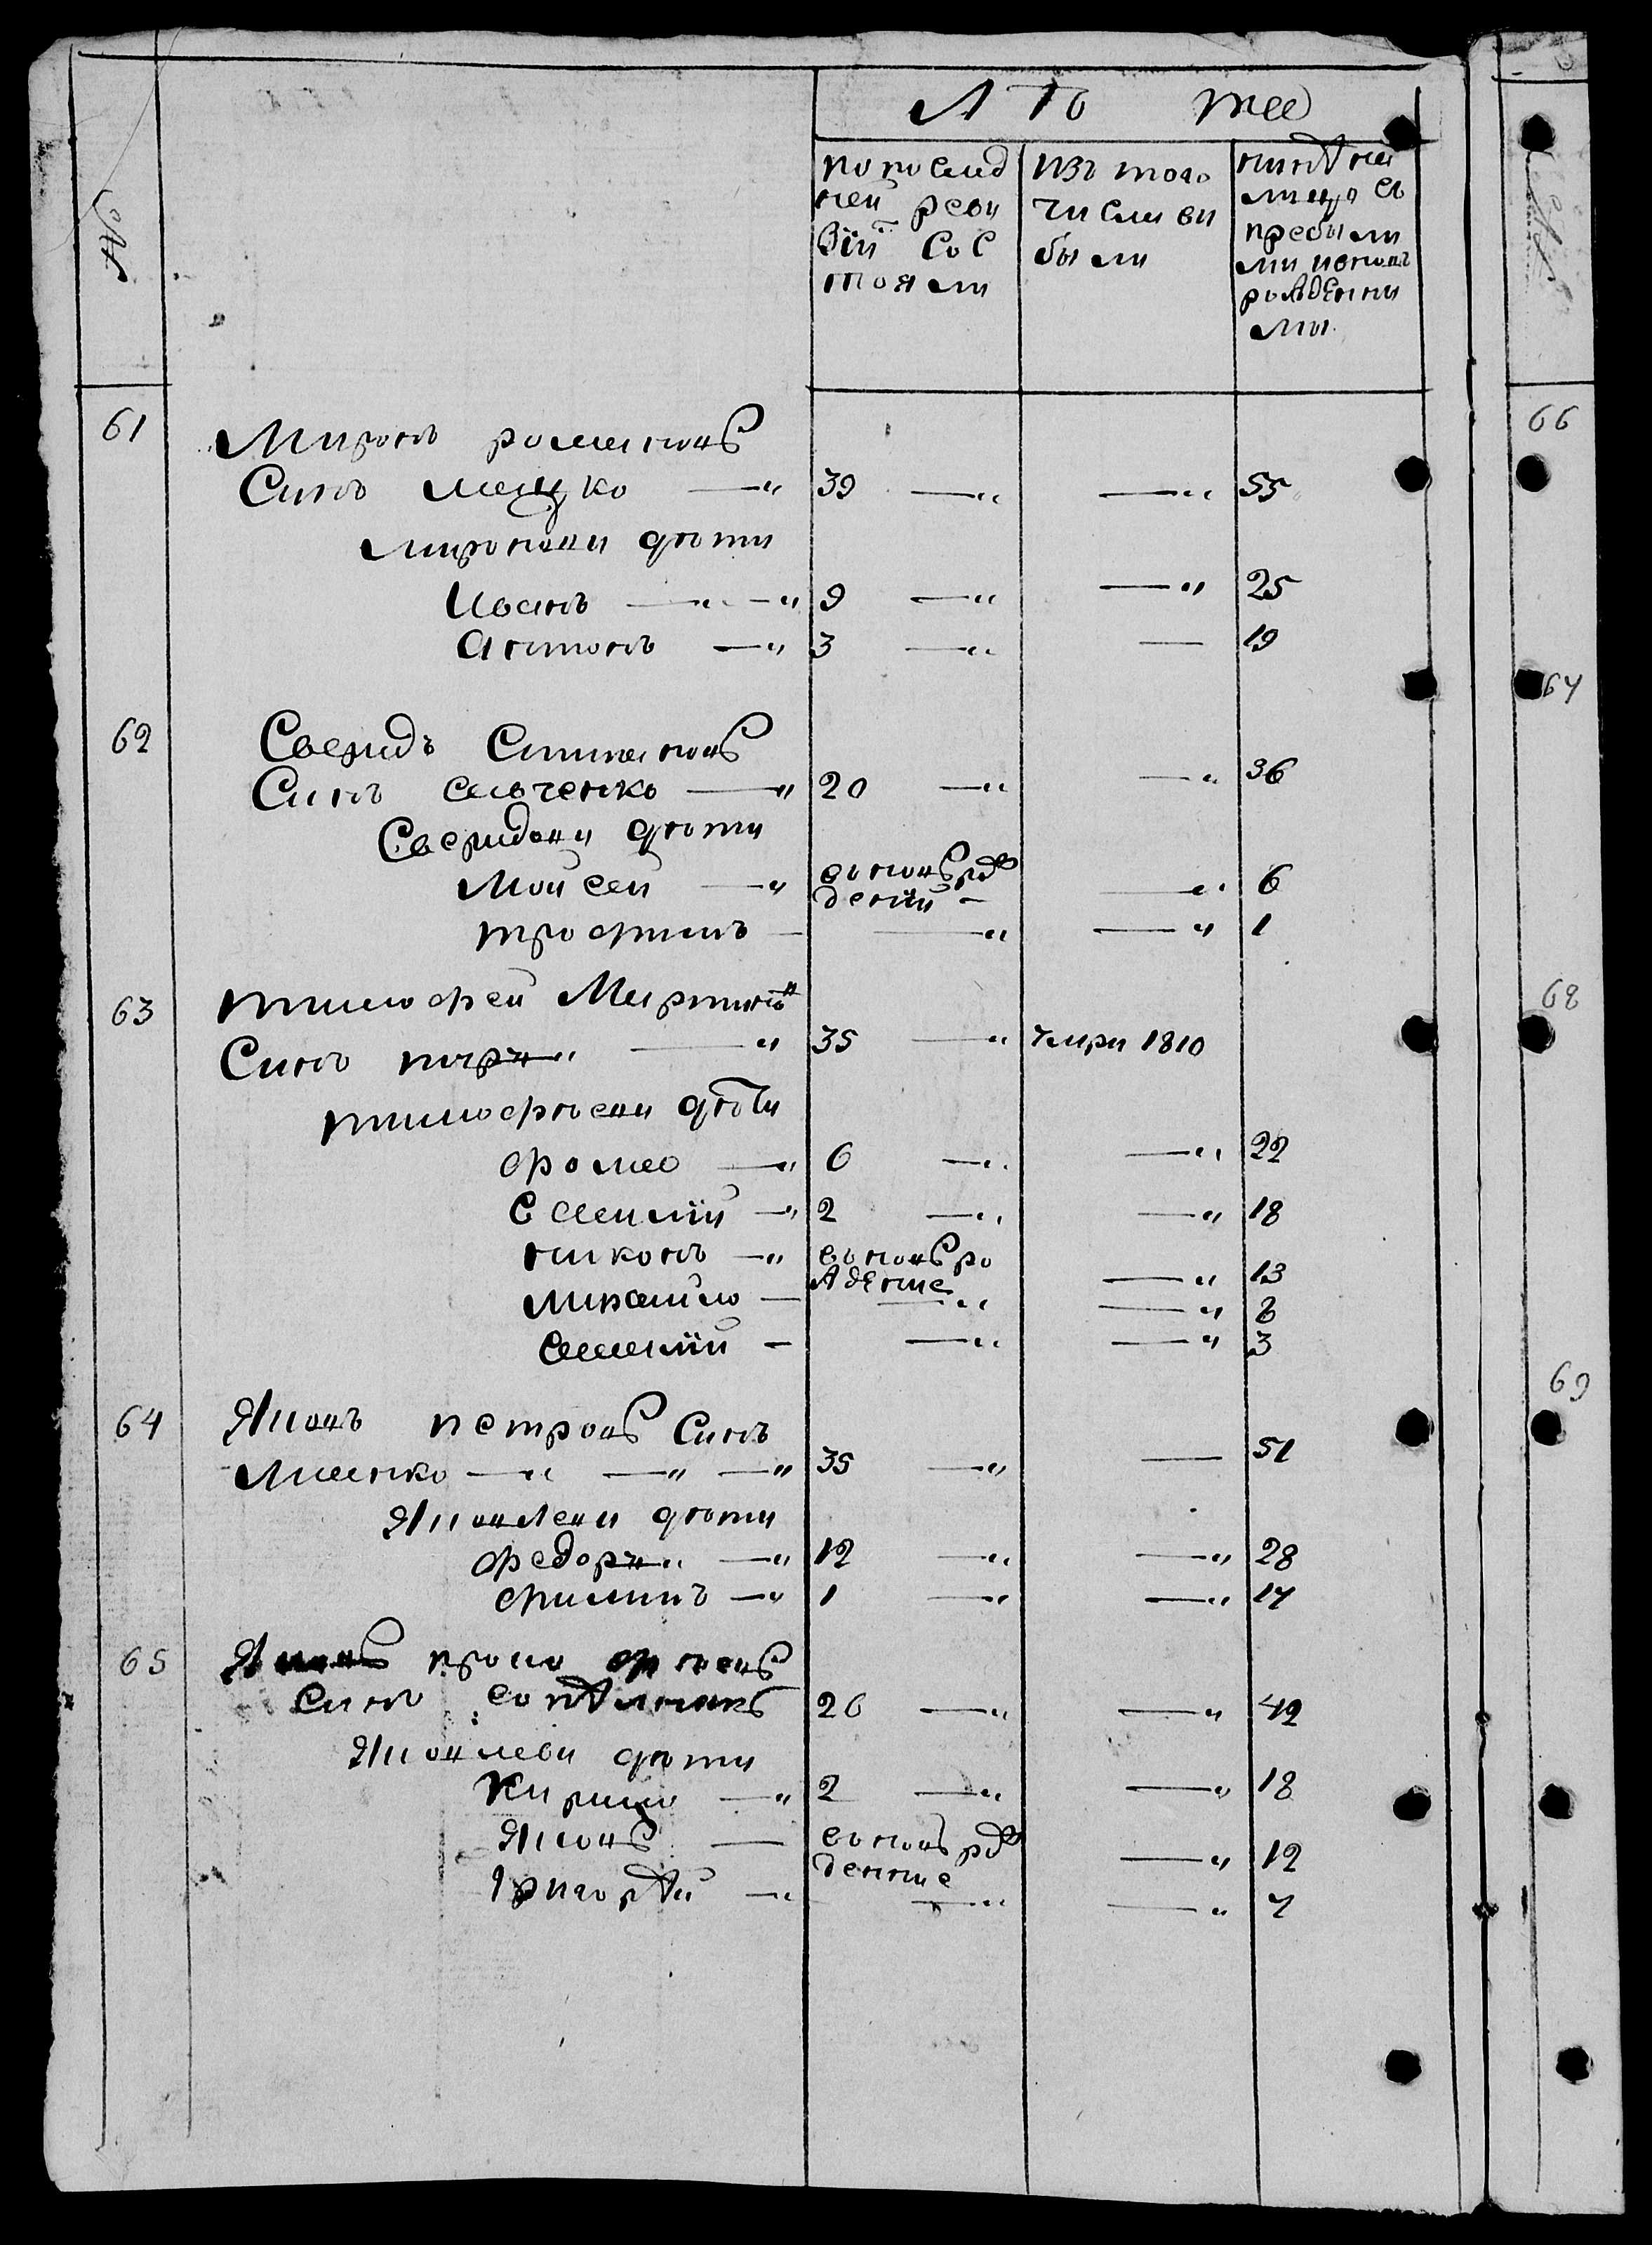 №
Лѣта
по послѣд
ней реви
зїи сос
тояли
изъ того
числа ви
были
нинѣ на
лицо съ
прибыли
ми иновъ
рожденни
ми
61
Миронъ романовъ
Синъ мацко — 39 — — 55
мироновы дѣти
Иванъ — 9 — — 25
Антонъ — 3 — — 19
62
Свиридъ Степановъ
Синъ савченко — 20 — — 36
Свиридовы дѣти
Мойсей — вновь рож
денїй — — 6
трофимъ — — — 1
63
тимофей Мартиновъ
Синъ — 35 — умре 1810
тимофѣевы дѣти
фома — 6 — — 22
Василїй — 2 — — 18
никонъ — вновь ро
жденне — 13
михайло — — — 8
Василїй — — — 3
64
Яковъ петровъ Синъ
— 35 — — 51
Яковлевы дѣти
федоръ — 12 — — 28
филипъ — 1 — — 17
65
Яковъ прокофѣевъ
Синъ 26 — — 42
Яковлевы дѣти
Кирило — 2 — — 18
Яковъ — вновь рож
денние — 12
Григорѣй — — — 7
66
67
68
69